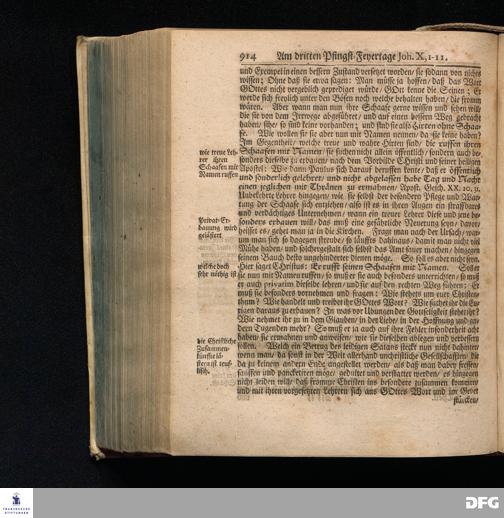 914 Am dritten Pfingst-Feyertage Joh. X, 1-11.
und Exempel in einen bessern Zustand versetzet worden/ sie sodann von nichts
wissen; Ohne daß sie etwa sagen: Man müsse ja hoffen/ daß das Wort
GOttes nicht vergeblich geprediget würde/ GOtt kenne die Seinen; Er
werde sich freylich unter den Bösen noch welche behalten haben/ die fromm
wären. Aber wann man nun ihre Schaafe gerne wissen und sehen will/
die sie von dem Irrwege abgeführet/ und auf einen bessern Weg gebracht
haben/ sihe/ so sind keine vorhanden; und sind sie also Hirten ohne Schaa-
fe. Wie wollen sie sie aber nun mit Namen nennen/ da sie keine haben?
Im Gegentheil/ welche treue und wahre Hirten sind/ die ruffen ihren
Schaafen mit Namen/ sie suchen nicht allein öffentlich/ sondern auch be-
sonders dieselbe zu erbauen/ nach dem Vorbilde Christi und seiner heiligen
Apostel: Wie dann Paulus sich darauf beruffen konte/ daß er öffentlich
und sonderlich gelehret/ und nicht abgelassen habe Tag und Nacht
einen jeglichen mit Thränen zu ermahnen/ Apost. Gesch. XX. 20, 31.
Unbekehrte Lehrer hingegen/ wie sie selbst der besondern Pflege und War-
tung der Schaafe sich entziehen/ also ist es in ihren Augen ein straffbares
und verdächtiges Unternehmen/ wann ein treuer Lehrer diese und jene be-
sonders erbauen will/ das muß eine gefährliche Neuerung seyn/ davor
heisset es/ gehet man ja in die Kirchen. Fragt man nach der Ursach/ war-
um man sich so dagegen streube/ so läuffts dahinaus/ damit man nicht viel
Mühe haben/ und solchergestalt sich selbst das Amt sauer machen/ hingegen
seinen Bauch desto ungehinderter dienen möge. So soll es aber nicht seyn.
Hier saget Christus: Er rufft seinen Schaafen mit Namen. Soll er
sie nun mit Namen ruffen/ so muß er sie auch besonders unterrichten/ so muß
er auch privatim dieselbe lehren/ und sie auf den rechten Weg führen: Er
muß sie besonders vornehmen und fragen: Wie stehets um euer Christen-
thum? Wie handelt und treibet ihr GOttes Wort? Wie suchet ihr die Eu-
rigen daraus zu erbauen? In was vor Ubungen der Gottseligkeit stehet ihr?
Wie nehmet ihr zu in dem Glauben/ in der Liebe/ in der Hoffnung und an-
dern Tugenden mehr? So muß er ja auch auf ihre Fehler insonderheit acht
haben/ sie ermahnen und anweisen/ wie sie dieselben ablegen und verbessern
sollen. Welch ein Betrug des leidigen Satans steckt nun nicht dahinter/
wenn man/ da sonst in der Welt allerhand unchristliche Gesellschafften/ die
da zu keinem andern Ende angestellet werden/ als daß man dabey fressen/
sauffen und panckettiren möge/ gedultet und verstattet werden/ es hingegen
nicht leiden will/ daß fromme Christen ins besondere zusammen kommen/
und mit ihren vorgesetzten Lehrern sich aus GOttes Wort und im Gebet
stärcken/
wie treue Leh-
rer ihren
Schaafen mit
Namen ruffen
Privat-Er-
bauung wird
gelästert
welche doch
sehr nöthig ist
die Christliche
Zusammen-
künffte lä-
stern ist teuf-
lisch.
FRANCKESCHE
STIFTUNGEN
DFG